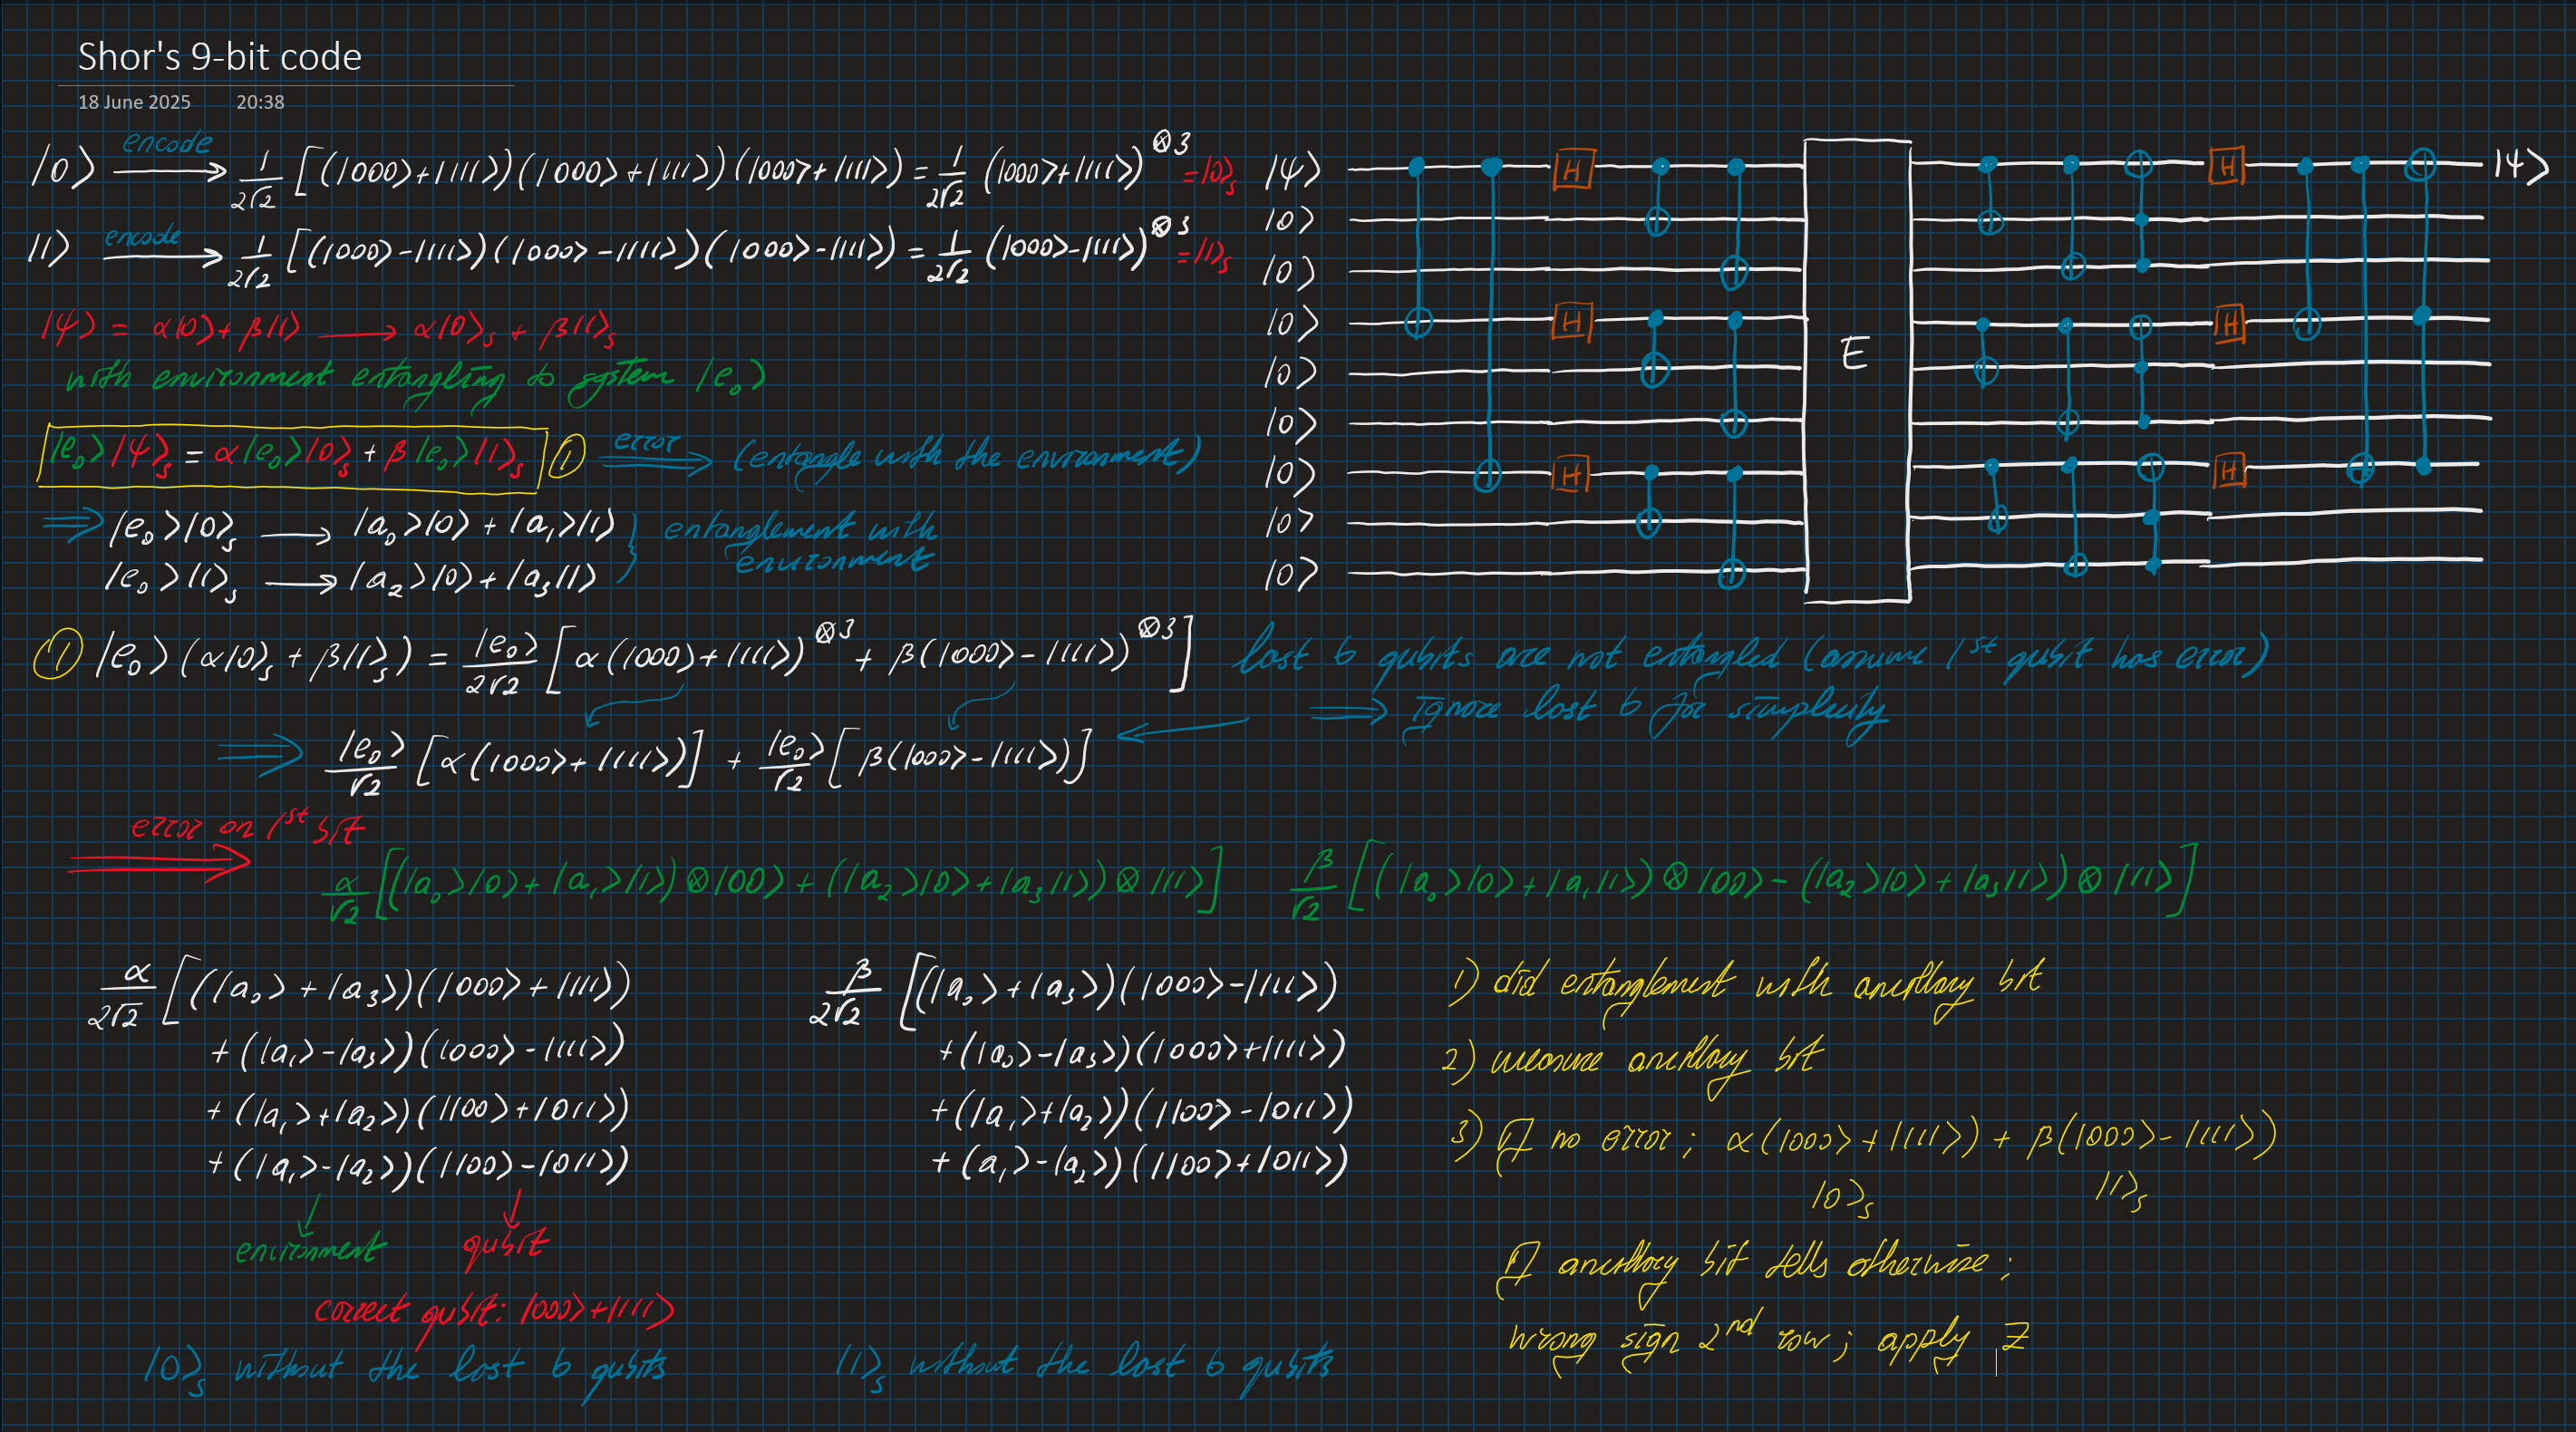 Shor's 9-bit code
18 June 2025 20:38
|0⟩ encode → 1/2√2 [(|000⟩+|111⟩)(|000⟩+|111⟩)(|000⟩+|111⟩) = 1/2√2 (|000⟩+|111⟩)^⊗3 = |0⟩_s
|1⟩ encode → 1/2√2 [(|000⟩-|111⟩)(|000⟩-|111⟩)(|000⟩-|111⟩) = 1/2√2 (|000⟩-|111⟩)^⊗3 = |1⟩_s
|ψ⟩ = α|0⟩ + β|1⟩ → α|0⟩_s + β|1⟩_s
with environment entangling to system |e₀⟩
|e₀⟩|ψ⟩_s = α|e₀⟩|0⟩_s + β|e₀⟩|1⟩_s ① error ⇒ (entangle with the environment)
⇒ |e₀⟩|0⟩_s → |a₀⟩|0⟩ + |a₁⟩|1⟩ } entanglement with
|e₀⟩|1⟩_s → |a₂⟩|0⟩ + |a₃|1⟩ environment
|ψ⟩ H E H |ψ⟩
|0⟩
|0⟩
|0⟩ H H
|0⟩
|0⟩
|0⟩ H H
|0⟩
|0⟩
① |e₀⟩(α|0⟩_s + β|1⟩_s) = |e₀⟩/2√2 [α(|000⟩+|111⟩)^⊗3 + β(|000⟩-|111⟩)^⊗3] last 6 qubits are not entangled (assume 1st qubit has error)
⇒ ignore last 6 for simplicity
⇒ |e₀⟩/√2 [α(|000⟩+|111⟩)] + |e₀⟩/√2 [β(|000⟩-|111⟩)]
error on 1st bit
⇒ α/√2 [(|a₀⟩|0⟩+|a₁⟩|1⟩)⊗|00⟩+(|a₂⟩|0⟩+|a₃|1⟩)⊗|11⟩] β/√2 [(|a₀⟩|0⟩+|a₁|1⟩)⊗|00⟩-(|a₂⟩|0⟩+|a₃|1⟩)⊗|11⟩]
α/2√2 [(|a₀⟩+|a₃⟩)(|000⟩+|111⟩)
+(|a₁⟩-|a₃⟩)(|000⟩-|111⟩)
+(|a₁⟩+|a₂⟩)(|100⟩+|011⟩)
+(|a₁⟩-|a₂⟩)(|100⟩-|011⟩)
environment qubit
correct qubit: |000⟩+|111⟩
|0⟩_s without the last 6 qubits
β/2√2 [(|a₀⟩+|a₃⟩)(|000⟩-|111⟩)
+(|a₀⟩-|a₃⟩)(|000⟩+|111⟩)
+(|a₁⟩+|a₂⟩)(|100⟩-|011⟩)
+(a₁⟩-|a₂⟩)(|100⟩+|011⟩)
|1⟩_s without the last 6 qubits
1) did entanglement with ancillary bit
2) measure ancillary bit
3) If no error; α(|000⟩+|111⟩) + β(|000⟩-|111⟩)
|0⟩_s |1⟩_s
If ancillary bit tells otherwise;
wrong sign 2nd row; apply Z